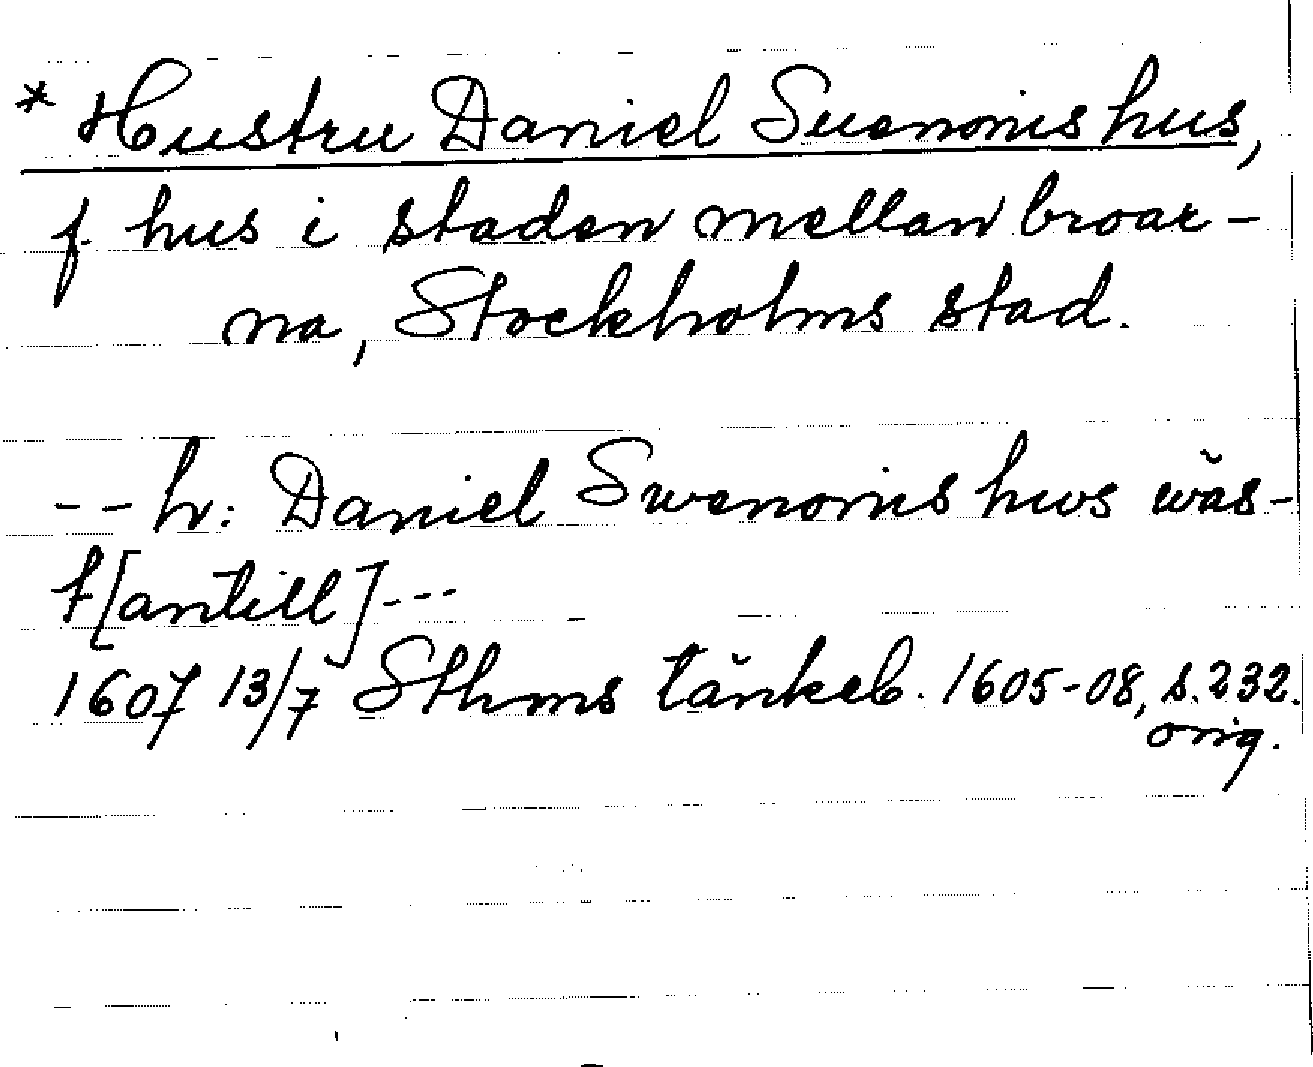 * Hustru Daniel Suenonis hus,
f. hus i staden mellan broar-
na, Stockholms stad.
-- hr: Daniel Swenonis hws wäs-
t[antill]---
1607 13/7 Sthms tänkeb. 1605-08, s. 232.
orig.